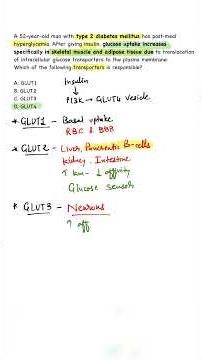 A 52-year-old man with type 2 diabetes mellitus has post-meal
hyperglycemia. After giving insulin, glucose uptake increases
specifically in skeletal muscle and adipose tissue due to translocation
of intracellular glucose transporters to the plasma membrane.
Which of the following transporters is responsible?
A. GLUT1
B. GLUT2
C. GLUT3
D. GLUT4
Insulin
↓
PI3K → GLUT4 vesicle
* GLUT1 - Basal uptake
RBC & BBB
* GLUT2 - Liver, Pancreatic B-cells
Kidney, Intestine
↑ km - ↓ affinity
Glucose sensor
* GLUT3 - Neurons
↑ aff